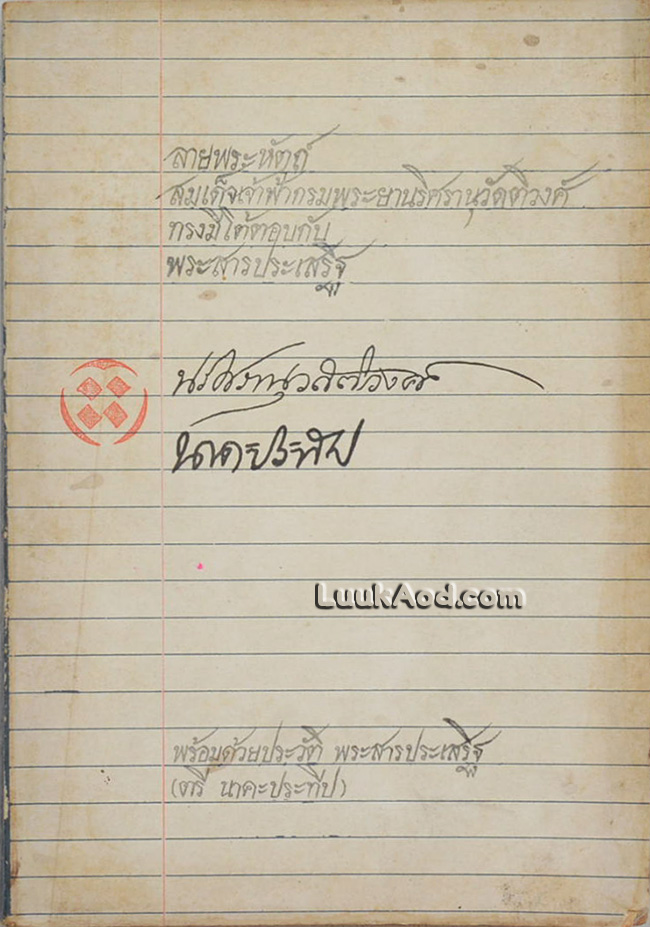 ลายพระหัตถ์
สมเด็จเจ้าฟ้ากรมพระยานริศรานุวัดติวงศ์
ทรงมีโต้ตอบกับ
พระสารประเสริฐ
นริศรานุวัดติวงศ์
นาคะประทีป
LuukAod.com
พร้อมด้วยประวัติ พระสารประเสริฐ
(ตรี นาคะประทีป)